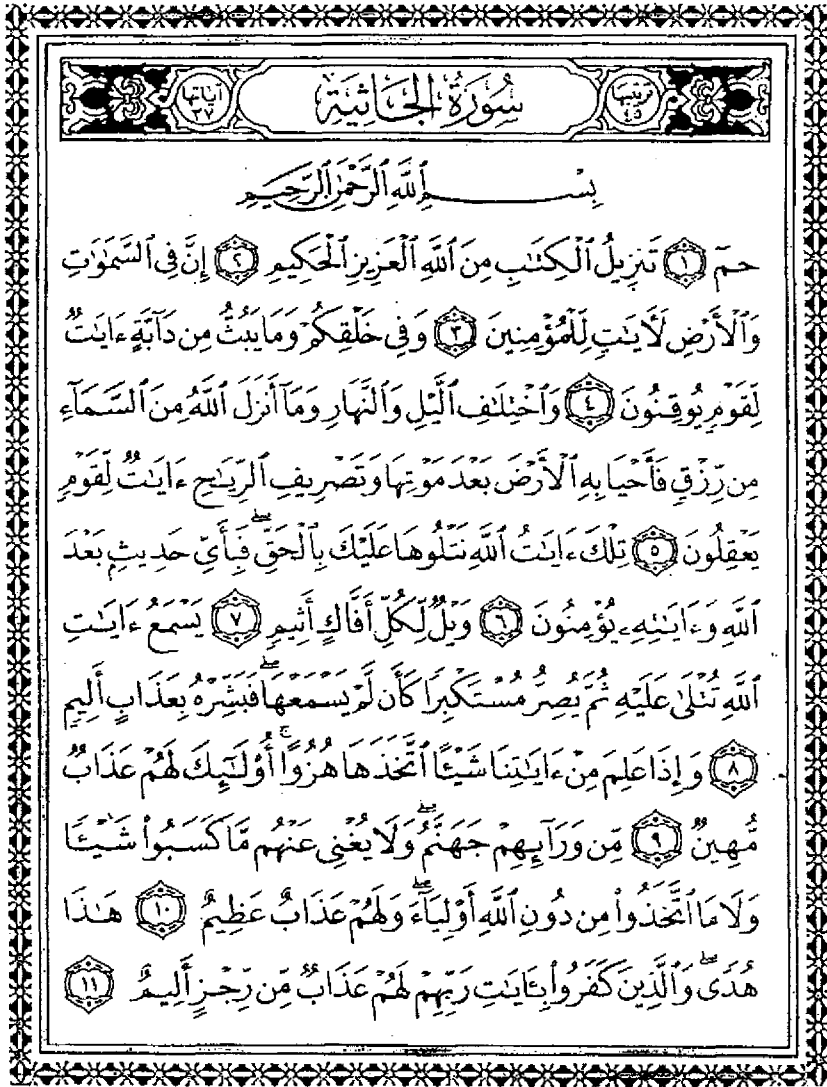 ترتيبها ٤٥ سُورَةُ الجَاثِيَةِ آياتها ٣٧
بِسْمِ ٱللَّهِ ٱلرَّحْمَٰنِ ٱلرَّحِيمِ
حمٓ ١ تَنزِيلُ ٱلْكِتَٰبِ مِنَ ٱللَّهِ ٱلْعَزِيزِ ٱلْحَكِيمِ ٢ إِنَّ فِى ٱلسَّمَٰوَٰتِ
وَٱلْأَرْضِ لَءَايَٰتٍ لِّلْمُؤْمِنِينَ ٣ وَفِى خَلْقِكُمْ وَمَا يَبُثُّ مِن دَآبَّةٍ ءَايَٰتٌ
لِّقَوْمٍ يُوقِنُونَ ٤ وَٱخْتِلَٰفِ ٱلَّيْلِ وَٱلنَّهَارِ وَمَآ أَنزَلَ ٱللَّهُ مِنَ ٱلسَّمَآءِ
مِن رِّزْقٍ فَأَحْيَا بِهِ ٱلْأَرْضَ بَعْدَ مَوْتِهَا وَتَصْرِيفِ ٱلرِّيَٰحِ ءَايَٰتٌ لِّقَوْمٍ
يَعْقِلُونَ ٥ تِلْكَ ءَايَٰتُ ٱللَّهِ نَتْلُوهَا عَلَيْكَ بِٱلْحَقِّ ۖ فَبِأَىِّ حَدِيثٍۭ بَعْدَ
ٱللَّهِ وَءَايَٰتِهِۦ يُؤْمِنُونَ ٦ وَيْلٌ لِّكُلِّ أَفَّاكٍ أَثِيمٍ ٧ يَسْمَعُ ءَايَٰتِ
ٱللَّهِ تُتْلَىٰ عَلَيْهِ ثُمَّ يُصِرُّ مُسْتَكْبِرًا كَأَن لَّمْ يَسْمَعْهَا ۖ فَبَشِّرْهُ بِعَذَابٍ أَلِيمٍ
٨ وَإِذَا عَلِمَ مِنْ ءَايَٰتِنَا شَيْـًٔا ٱتَّخَذَهَا هُزُوًا ۚ أُو۟لَٰٓئِكَ لَهُمْ عَذَابٌ
مُّهِينٌ ٩ مِّن وَرَآئِهِمْ جَهَنَّمُ ۖ وَلَا يُغْنِى عَنْهُم مَّا كَسَبُوا۟ شَيْـًٔا
وَلَا مَا ٱتَّخَذُوا۟ مِن دُونِ ٱللَّهِ أَوْلِيَآءَ ۖ وَلَهُمْ عَذَابٌ عَظِيمٌ ١٠ هَٰذَا
هُدًى ۖ وَٱلَّذِينَ كَفَرُوا۟ بِـَٔايَٰتِ رَبِّهِمْ لَهُمْ عَذَابٌ مِّن رِّجْزٍ أَلِيمٌ ١١